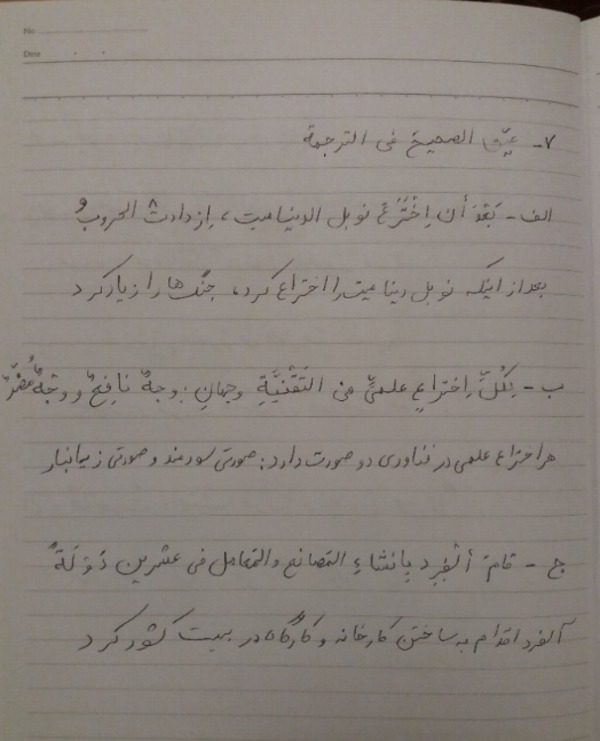 No
Date
۷- عیّن الصحیح فی الترجمة
الف - بَعْدَ أن اِخْتَرَعَ نوبل الدینامیت، اِزدادَتْ الحروبُ
بعد از اینکه نوبل دینامیت را اختراع کرد، جنگ ها را زیاد کرد
ب - لِکُلِّ اِختراعٍ علمیٍّ فی التَقْنیَّةِ وجهانِ: وجهٌ نافِعٌ و وَجْهٌ مُضِرٌّ
هر اختراع علمی در فناوری دو صورت دارد: صورتی سودمند و صورتی زیانبار
ج - قامَ ألْفِرِد بِإنشاءِ المَصانِع والمَعامِل فی عشرین دَوْلَةً
آلفرد اقدام به ساختن کارخانه و کارگاه در بیست کشور کرد